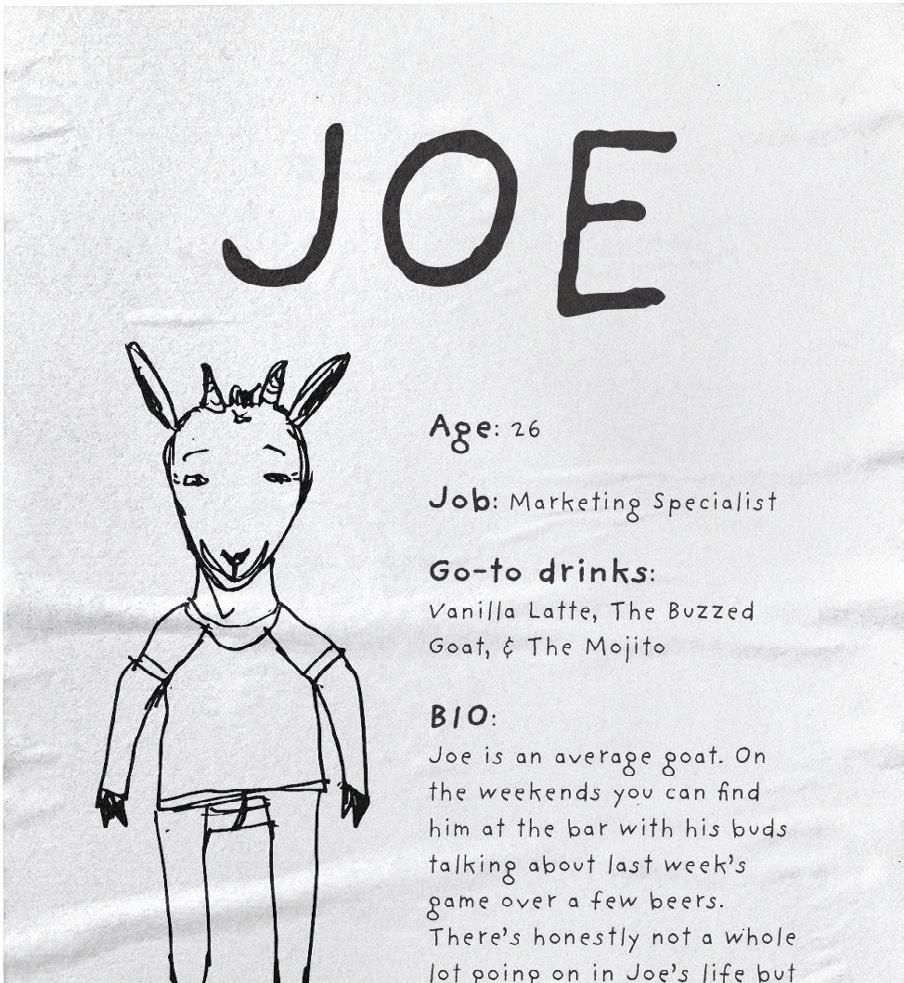 JOE
Age: 26
Job: Marketing Specialist
Go-to drinks:
Vanilla Latte, The Buzzed
Goat, & The Mojito
BIO:
Joe is an average goat. On
the weekends you can find
him at the bar with his buds
talking about last week's
game over a few beers.
There's honestly not a whole
lot going on in Joe's life but